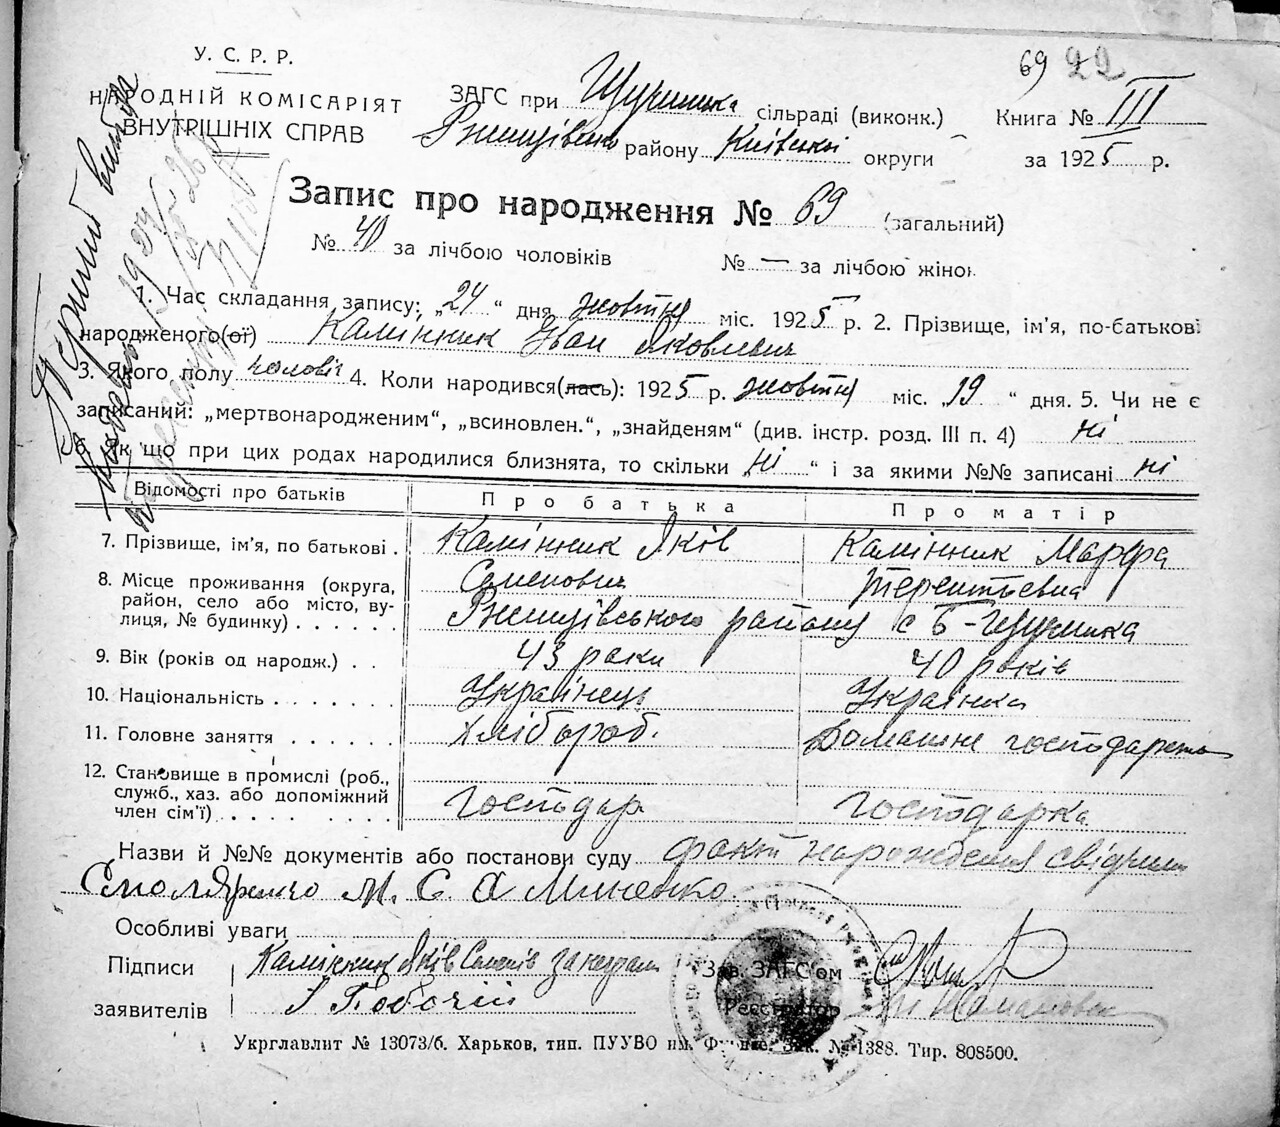 69 22
У. С. Р. Р.
НАРОДНІЙ КОМІСАРІЯТ
ВНУТРІШНІХ СПРАВ
ЗАГС при Щучинка сільраді (виконк.)
Книга № III
Ржищівсько району Київської округи
за 1925 р.
Запис про народження № 69 (загальний)
№ 40 за лічбою чоловіків № — за лічбою жінок.
1. Час складання запису: „24“ дня жовтня міс. 1925 р. 2. Прізвище, ім’я, по-батькові
народженого(ої) Камінник Іван Яковлевич
3. Якого полу чоловіч 4. Коли народився(лась): 1925 р. жовтня міс. „19“ дня. 5. Чи не є
записаний: „мертвонародженим“, „всиновлен.“, „знайденям“ (див. інстр. розд. III п. 4) ні
6. Як що при цих родах народилися близнята, то скільки „ні“ і за якими №№ записані ні
Відомості про батьків Про батька Про матір
7. Прізвище, ім’я, по батькові . Камінник Яків Камінник Марфа
Семенович Терентьевна
8. Місце проживання (округа,
район, село або місто, ву-
лиця, № будинку) . . . . . . Ржищівського району с Б-Щучинка
9. Вік (років од народж.) . . 43 роки 40 років
10. Національність . . . . . . . Українець Українка
11. Головне заняття . . . . . . Хлібороб. Домашнє
12. Становище в промислі (роб.,
служб., хаз. або допоміжний
член сім’ї) . . . . Господар Господарка
Назви й №№ документів або постанови суду факт народження
М. С. Миненко
Особливі уваги
Підписи Камінник Яків Зав. ЗАГС’ом
заявителів Реєстратор
Укрглавліт № 13073/б. Харьков, тип. ПУУВО им. Фрунзе. Зак. № 1388. Тир. 808500.